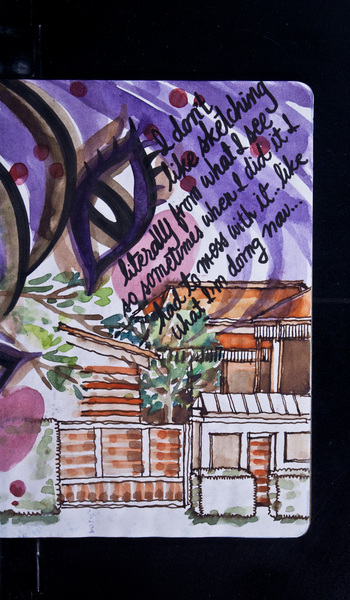 I don't
like sketching
literally from what I see
so sometimes when I did it I
had to mess with it.. like
what I'm doing now...